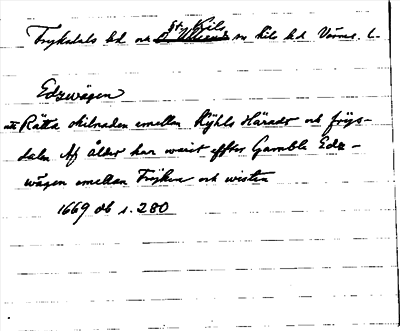 St. Kils
Fryksdals hd och sn Kils hd Värml. l.
Edzwägen
Rätta skilnaden emellan Kyhls Häradt och frijs-
dalen Af ålder har warit effter Gamble Edz-
wägen emellan Frijken och wisten
1669 db s. 280